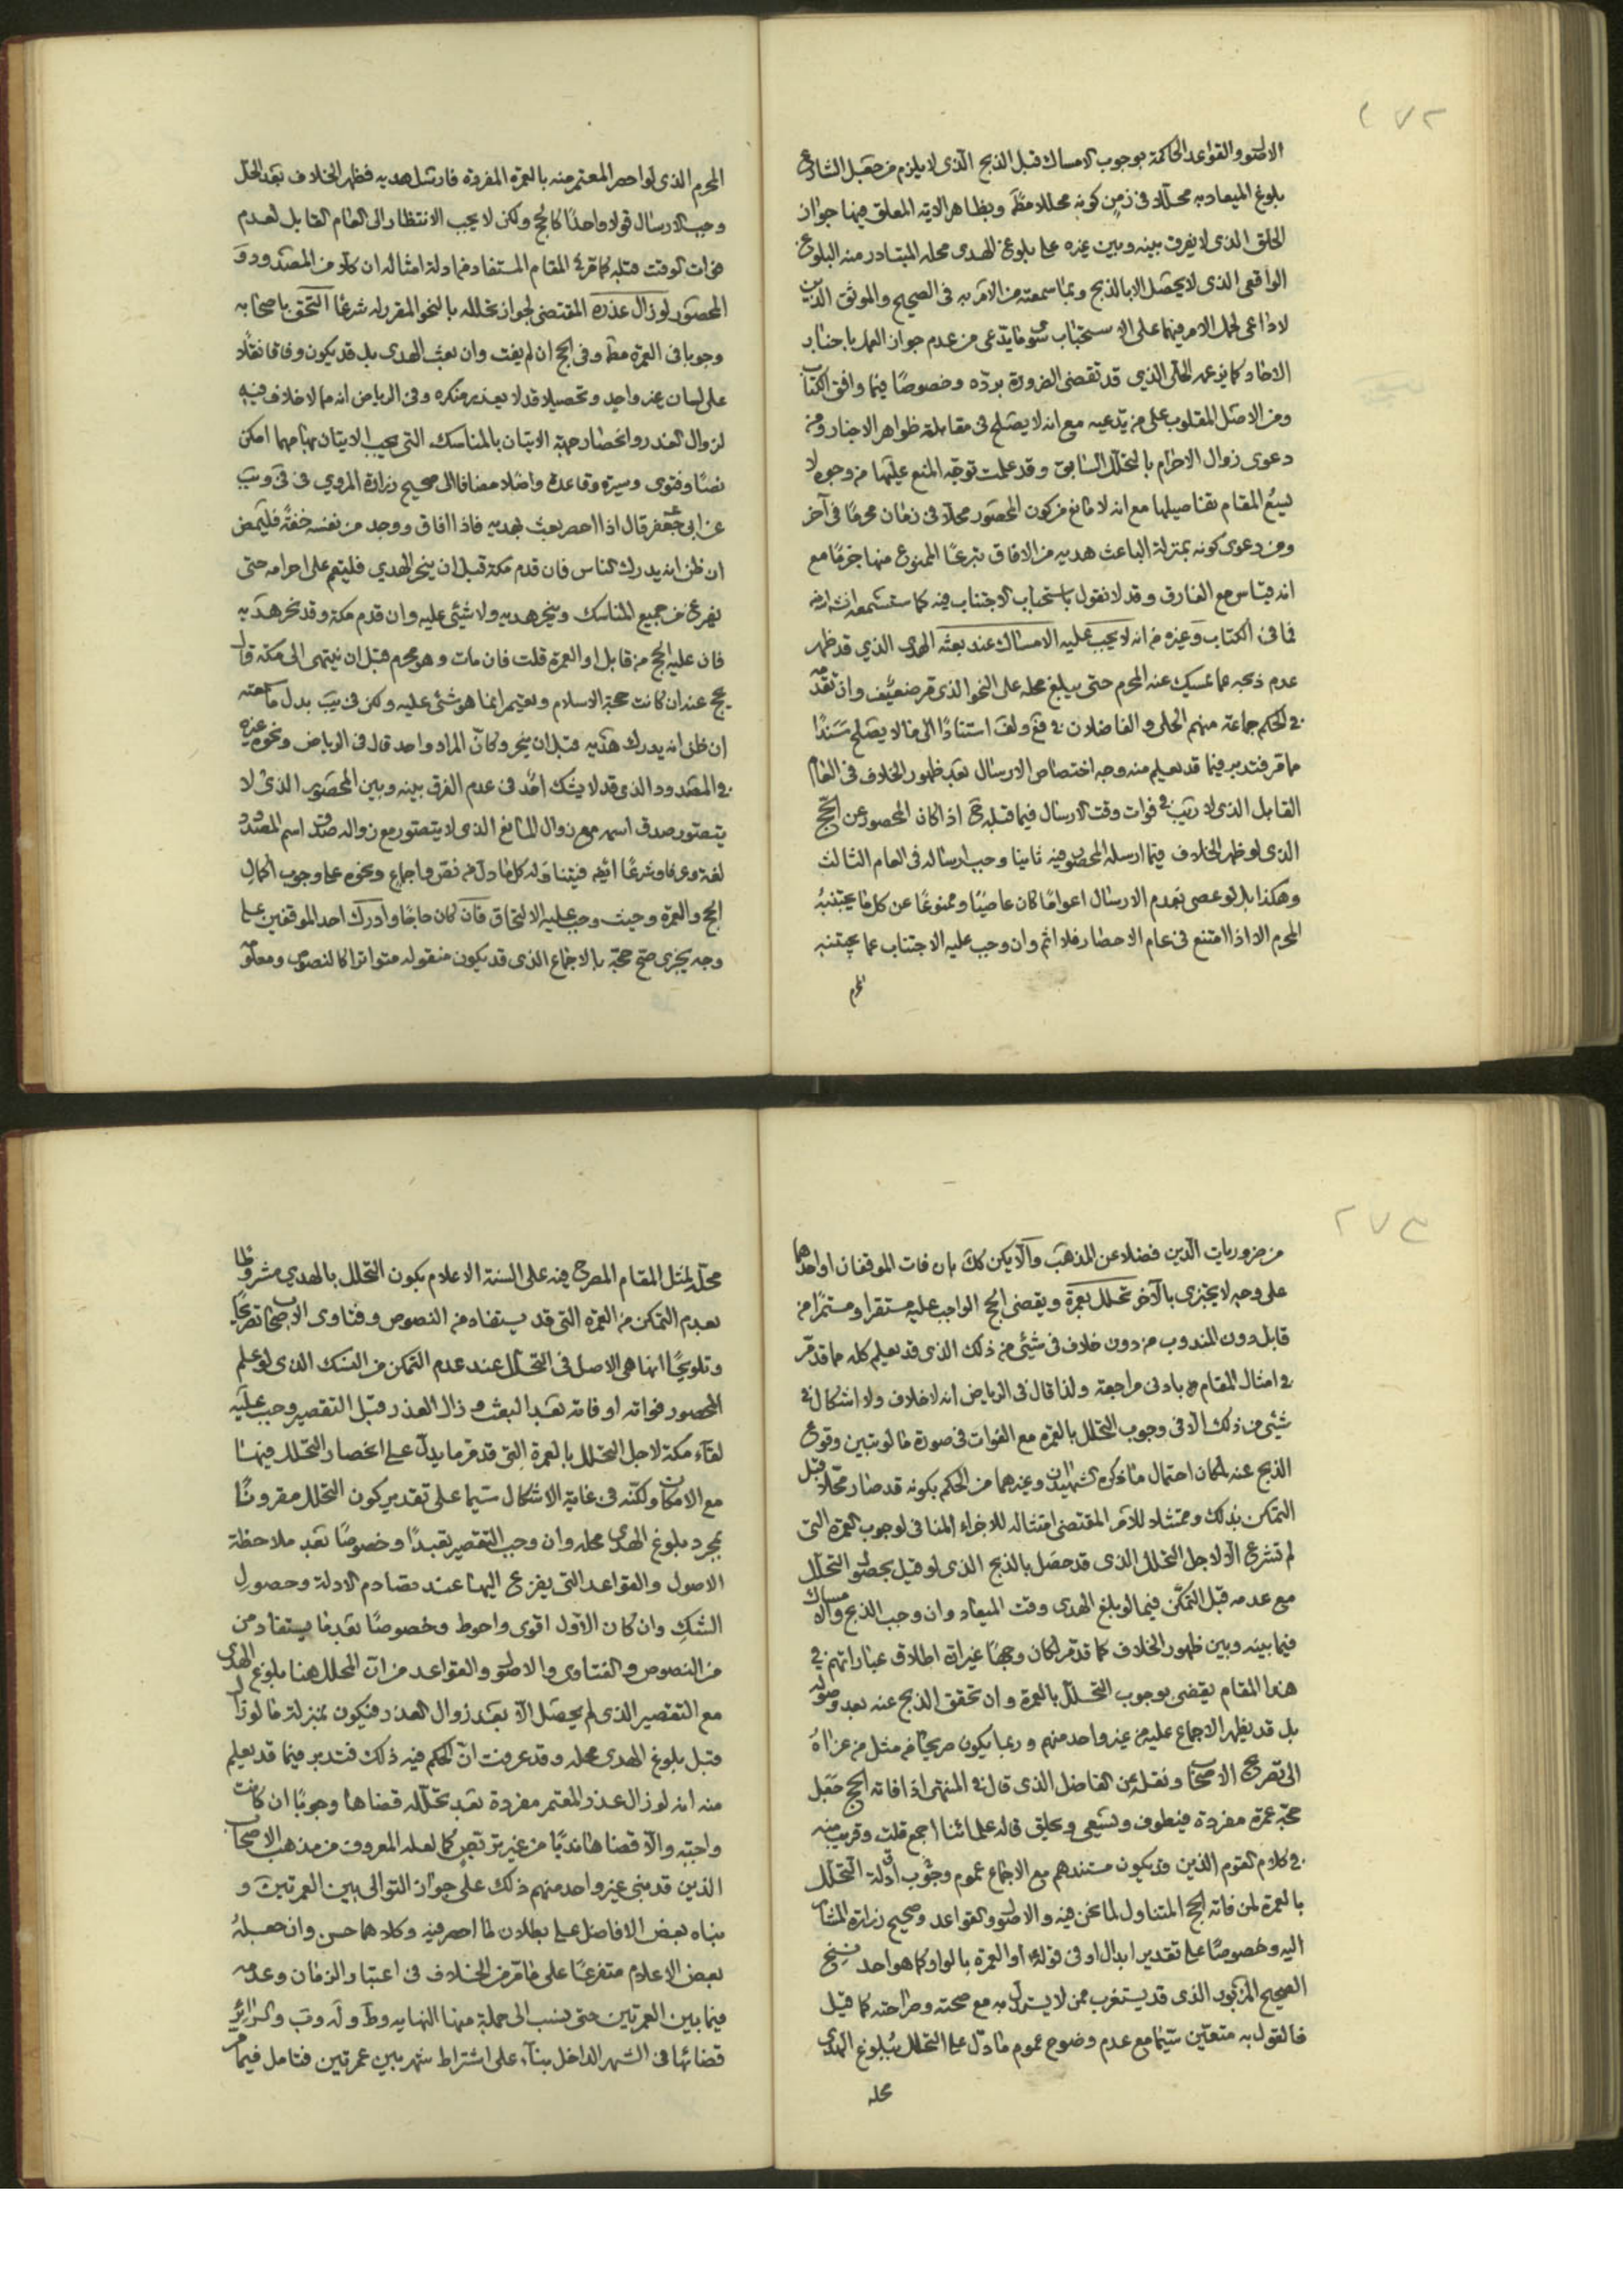 ٢٧٢
الاصول والقواعد الحاكمة بوجوب الامساك قبل الذبح الذى لا يلزم من جعل الشارع
بلوغ الميعاد به محللا فى زمن كونه محللا مطَ وبظاهر الاية المعلق فيها جواز
الحلق الذى لا يفرق بينه وبين غيره على بلوغ الهدى محله المتبادر منه البلوغ
الواقعى الذى لا يحصل الا بالذبح وبما سمعته من الامر به فى الصحيح والموثق الذين
لا داعى لحمل الامر فيهما على الاستحباب سوى ما يدعى من عدم جواز العمل باخبار
الاحاد كما يزعمه الحلى الذي قد تقضى الضرورة بردّه وخصوصًا فيما وافق الكتاب
ومن الاصل المقلوب على من يدعيه مع انه لا يصلح فى مقابلة ظواهر الاخبار ومن
دعوى زوال الاحرام بالتحلل السابق وقد علمت توجّه المنع عليها من وجوه لا
يسع المقام تفاصيلها مع انه لا مانع من كون المحصور محلاّ فى زمان محرمًا فى آخر
ومن دعوى كونه بمنزلة الباعث هديه من الافاق تبرعًا الممنوع منها جزمًا مع
انه قياس مع الفارق وقد لا نقول باستحباب الاجتناب فيه كما ستسمعه انشاءالله
فما فى الكتاب وغيره من انه لا يجب عليه الامساك عند بعثه الهدى الذي قد ظهر
عدم ذبحه عما يمسك عنه المحرم حتى يبلغ محله على النحو الذى مر ضعيف وان تقدّمه
فى الحكم جماعة منهم الحلى والفاضلان فى فع ولف استنادًا الى ما لا يصلح سندًا
مما مر فتدبر فيما قد يعلم منه وجه اختصاص الارسال بعد ظهور الخلاف فى العام
القابل الذى لا ريب فى فوات وقت الارسال فيما قبله اذا كان المحصور عن الحج
الذى لو ظهر الخلاف فيما ارسله المحصور فيه ثانيا وجب ارساله فى العام الثالث
وهكذا بل لو عصى بعدم الارسال اعوامًا كان عاصيًا وممنوعًا عن كل ما يجتنبه
المحرم الا اذا امتنع فى عام الاحصار فلا اثم وان وجب عليه الاجتناب عما يجتنبه
المحرم
المحرم الذى لو احصر المعتمر منه بالعمرة المفردة فارسل هديه فظهر الخلاف بعد الحلّ
وجب الارسال قولا واحدًا كالحج ولكن لا يجب الانتظار الى العام القابل لعدم
فوات الوقت قبله كما قرئ المقام المستفاد من ادلة امثاله ان كلا من المصدود و
المحصور لو زال عذره المقتضى لجواز تحلله بالنحو المقرر له شرعًا التحق باصحابه
وجوبا فى العمرة مط وفى الحج ان لم يفت وان بعث الهدى بل قد يكون وفاقا نقلا
على لسان غير واحد وتحصيلا قد لا يعذر منكره وفى الرياض انه مما لا خلاف فيه
لزوال العذر وانحصار جهة الاتيان بالمناسك التى يجب الاتيان بها مهما امكن
نصًا وفتوى وسيرة وقاعدة واصلا مضافا الى صحيح زرارة المروي فى فى ويب
عن ابى جعفرع قال اذا احصر بعث بهديه فاذا افاق ووجد من نفسه خفة فليمض
ان ظن انه يدرك الناس فان قدم مكة قبل ان ينحر الهدي فليقم على احرامه حتى
يفرغ من جميع المناسك وينحر هديه ولا شئى عليه وان قدم مكة وقد نحر هديه
فان عليه الحج من قابل او العمرة قلت فان مات وهو محرم قبل ان ينتهى الى مكة قال
يحج عنه ان كانت حجة الاسلام ويعتمر انما هو شئى عليه ولكن فى يب بدل ما سمعته
ان ظن انه يدرك هديه قبل ان ينحر وكانّ المراد واحد قال فى الرياض ونحوه غيره
فى المصدود الذى قد لا يشك احد فى عدم الفرق بينه وبين المحصور الذى لا
يتصور صدق اسمه مع زوال المانع الذى لا يتصور مع زواله صدق اسم المصدود
لغة وعرفا وشرعًا ايضا فيتناوله كل ما دل من نصّ واجماع ونحوه على وجوب اكمال
الحج والعمرة وحيث وجب عليه الالتحاق فان كان حاجًا وادرك احد الموقفين على
وجه يجزى صح حجّه بالاجماع الذى قد يكون منقوله متواترا كالنصوص ومعلو
٢٧٣
من ضروريات الدين فضلا عن المذهب والّا يكن كك بان فات الموقفان او احدهما
على وجه لا يجتزى بالآخر تحلل بعمرة ويقضى الحج الواجب عليه مستقرا ومستمرًا من
قابل دون المندوب من دون خلاف فى شئى من ذلك الذى قد يعلم كله مما قد مر
فى امثال المقام بادنى مراجعة ولذا قال فى الرياض انه لا خلاف ولا اشكال فى
شئى من ذلك الّا فى وجوب التحلل بالعمرة مع الفوات فى صورة ما لو تبين وقوع
الذبح عنه لمكان احتمال ما ذكره الشهيدان وغيرهما من الحكم بكونه قد صار محّلا قبل
التمكن بذلك وممتثلا للامر المقتضى امتثاله للاجزاء المنافى لوجوب العمرة التى
لم تشرع الّا لاجل التحلل الذى قد حصل بالذبح الذى لو قيل بحصول التحلل
مع عدمه قبل التمكّن فيما لو بلغ الهدى وقت الميعاد وان وجب الذبح والامساك
فيما بينه وبين ظهور الخلاف كما قد مر لكان وجهًا غير ان اطلاق عباراتهم فى
هذا المقام يقضى بوجوب التحلل بالعمرة وان تحقق الذبح عنه بعد وصوله
بل قد يظهر الاجماع عليه من غير واحد منهم وربما يكون صريحا من مثل من عزاه
الى تصريح الاصحاب ونقله عن الفاضل الذى قال فى المنتهى اذا فاته الحج جعل
حجّه عمرة مفردة فيطوف ويسعى ويحلق قاله علمائنا اجمع قلت وقريب منه
فى كلام القوم الذين قد يكون مستندهم مع الاجماع عموم وجوب ادلة التحلل
بالعمرة لمن فاته الحج المتناول لما نحن فيه والاصول والقواعد وصحيح زرارة المشار
اليه وخصوصًا على تقدير ابدال او فى قوله او العمرة بالواو كما هو احد نسخ
الصحيح المزبور الذى قد يستغرب ممن لا يستدل به مع صحته وصراحته كما قيل
فالقول به متعيّن سيّما مع عدم وضوح عموم ما دل على التحلل ببلوغ الهدى
محله
محلّه لمثل المقام المصرح فيه على السنة الاعلام بكون التحلل بالهدي مشروطا
بعدم التمكن من العمرة التى قد يستفاد من النصوص وفتاوى الاصحاب تصريحًا
وتلويحًا انها هى الاصل فى التحلل عند عدم التمكن من النسك الذى لو علم
المحصور فواته او فاته بعد البعث وزال العذر قبل التقصير وجب عليه
لقاء مكة لاجل التحلل بالعمرة التى قد مر ما يدل على انحصار التحلل فيها
مع الامكان ولكنّه فى غاية الاشكال سيّما على تقدير كون التحلل مقرونًا
بمجرد بلوغ الهدى محله وان وجب التقصير تعبدًا وخصوصًا بعد ملاحظة
الاصول والقواعد التى يفزع اليها عند تصادم الادلة وحصول
الشك وان كان الاول اقوى واحوط وخصوصًا بعد ما يستفاد من
من النصوص والفتاوى والاصول والقواعد من ان المحلل هنا بلوغ الهدى
مع التقصير الذى لم يحصل الّا بعد زوال العذر فيكون بمنزلة ما لو زال
قبل بلوغ الهدى محله وقد عرفت انّ الحكم فيه ذلك فتدبر فيما قد يعلم
منه انه لو زال عذر المعتمر مفردة بعد تحلّله قضاها وجوبًا ان كانت
واجبة والّا قضاها ندبًا من غير تربص كما لعله المعروف من مذهب الاصحاب
الذين قد بنى غير واحد منهم ذلك على جواز التوالى بين العمرتين و
بناه بعض الافاضل على بطلان ما احصر فيه وكلاهما حسن وان جعله
بعض الاعلام متفرعًا على ما مر من الخلاف فى اعتبار الزمان وعدمه
فيما بين العمرتين حتى نسب الى جملة منها النهايه وط وله وب والسرائر
قضائها فى الشهر الداخل بناء على اشتراط شهر بين عمرتين فتامل فيما مر